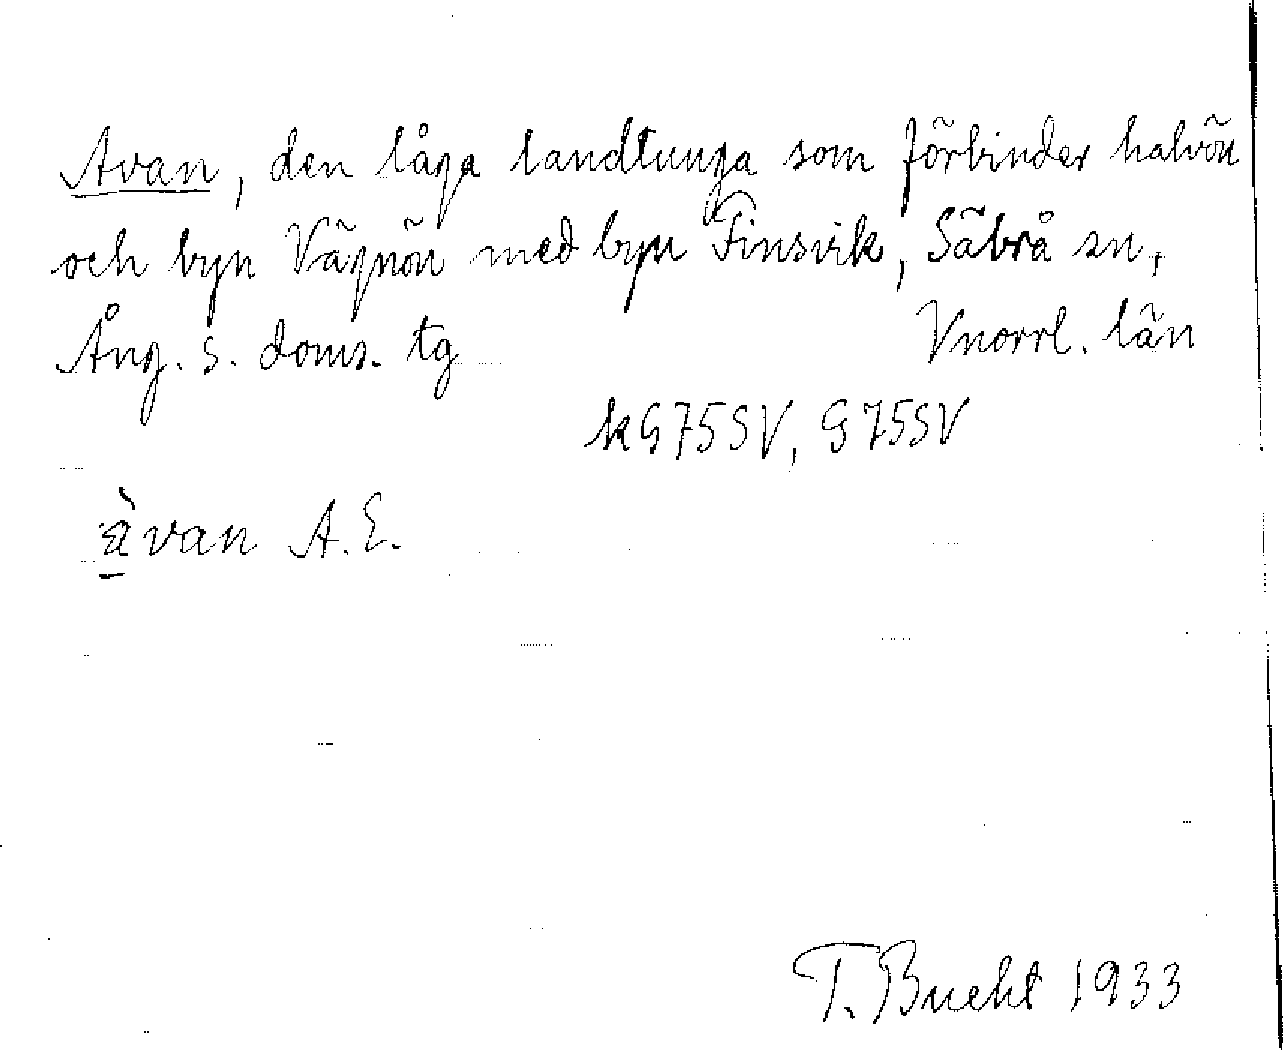 Avan, den låga landtunga som förbinder halvön
och byn Vägnön med byn Finsvik, Säbrå sn,
Ång. s. doms. tg Vnorrl. län
kG75SV, G75SV
àvan A.E.
T. Bucht 1933